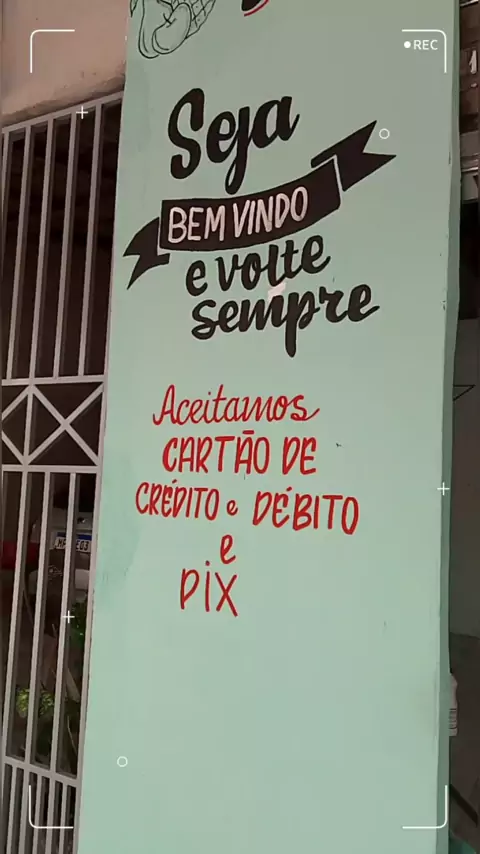 REC
Seja
BEM VINDO
e volte
sempre
Aceitamos
CARTÃO DE
CRÉDITO e DÉBITO
e
PIX